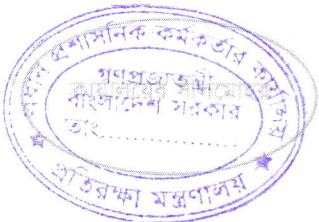 প্রধান প্রশাসনিক কর্মকর্তার কার্যালয়
গণপ্রজাতন্ত্রী
বাংলাদেশ সরকার
তাং....................
★ প্রতিরক্ষা মন্ত্রণালয় ★